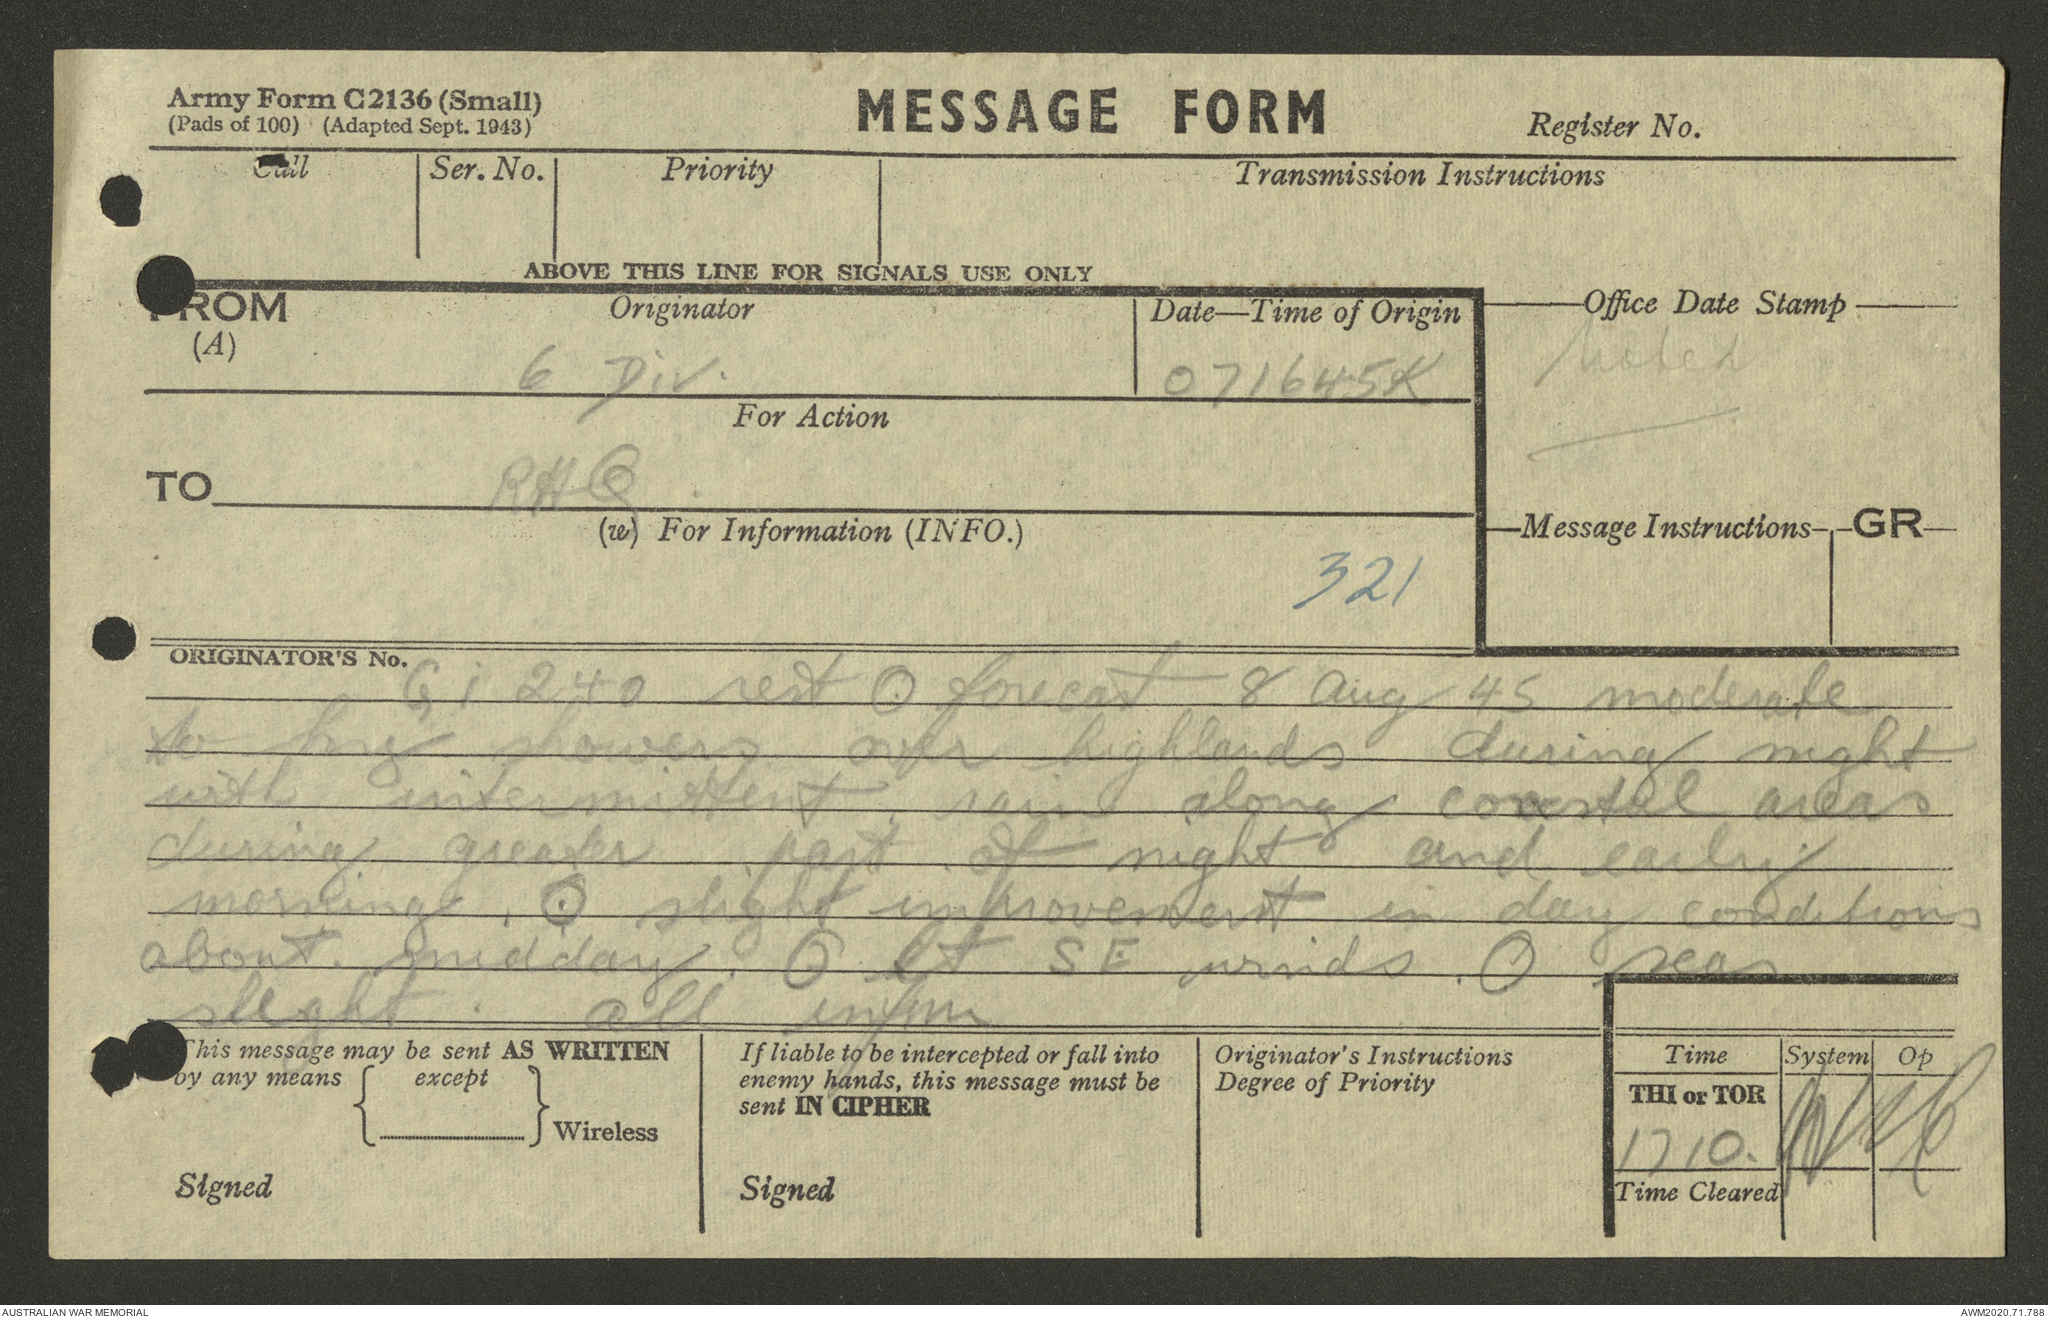 Army Form C2136 (Small)
(Pads of 100) (Adapted Sept. 1943)
MESSAGE FORM
Register No.
Call
Ser. No.
Priority
Transmission Instructions
ABOVE THIS LINE FOR SIGNALS USE ONLY
FROM
(A)
Originator
6 Div.
Date—Time of Origin
071645K
Office Date Stamp
Noted
For Action
TO
RHQ
(w) For Information (INFO.)
321
Message Instructions
GR
ORIGINATOR'S No.
Gi 240 rest O forecast 8 Aug 45 moderate
to hvy showers over highlands during night
with intermittent rain along coastal areas
during greater part of night and early
morning. O slight improvement in day conditions
about midday. O lt SE winds. O seas
slight. all infm
This message may be sent AS WRITTEN
by any means { except } Wireless
Signed
If liable to be intercepted or fall into
enemy hands, this message must be
sent IN CIPHER
Signed
Originator's Instructions
Degree of Priority
Time
System
Op
THI or TOR
1710.
Time Cleared
AUSTRALIAN WAR MEMORIAL
AWM2020.71.788